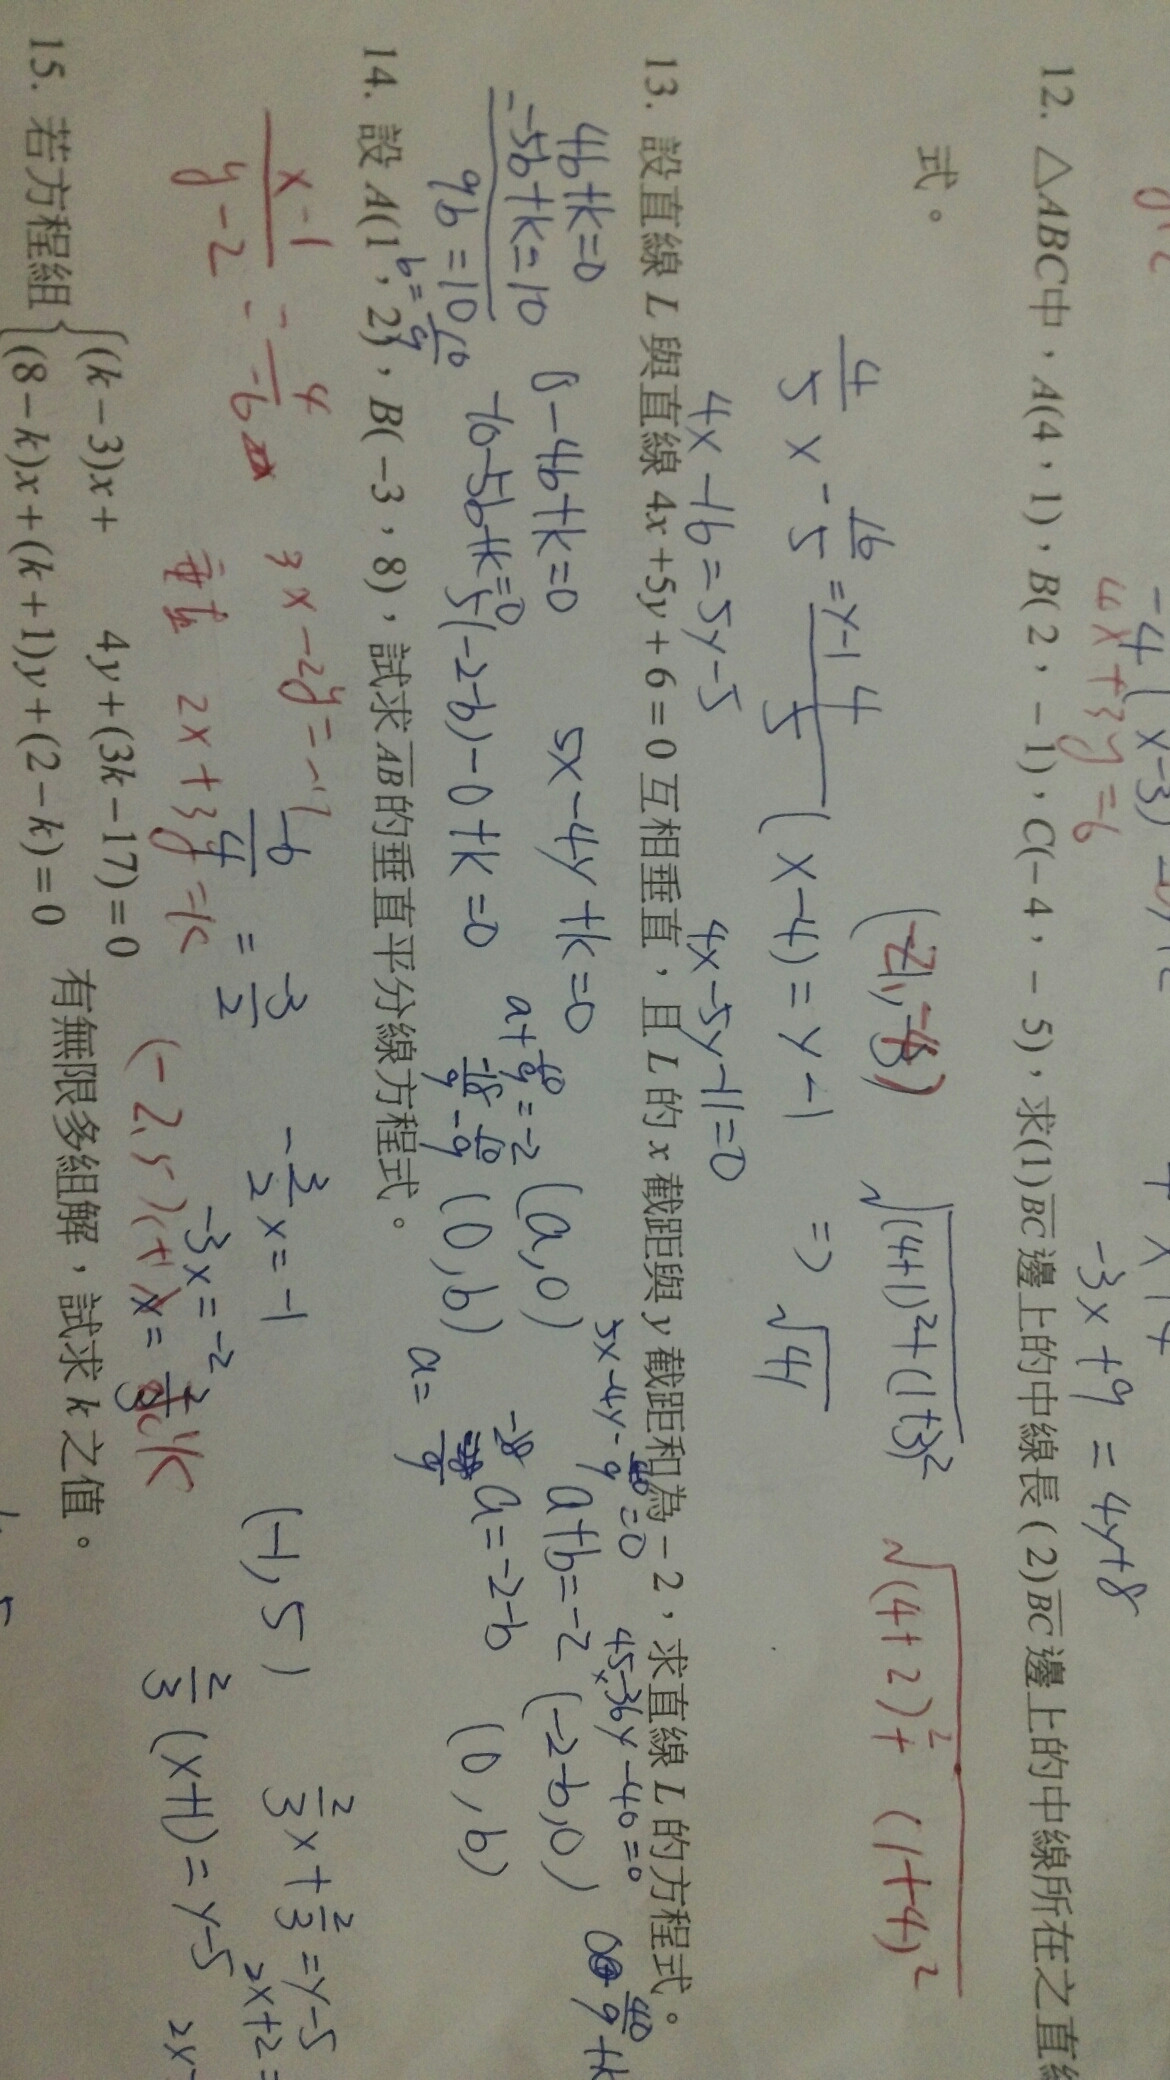 -4(x-3)
4x+3y=6
-3x+9=4y+8
12. △ABC中，A(4，1)，B(2，-1)，C(-4，-5)，求(1)BC邊上的中線長(2)BC邊上的中線所在之直
式。
√(4+1)²+(1+3)²
√(4+2)²+(1+4)²
4/5x-16/5=y-1
4/5(x-4)=y-1 ⇒ √41
4x-16=5y-5
4x-5y-11=0
13. 設直線 L 與直線 4x+5y+6=0 互相垂直，且 L 的 x 截距與 y 截距和為-2，求直線 L 的方程式。
5x-4y-40/9=0
45x-36y-40=0
4b+k=0
0-4b+k=0
5x-4y+k=0
(a,0)
a+b=-2
(-2-b,0)
-5b+k=10
-10-5b+k=0
5(-2-b)-0+k=0
a+10/9=-2
-18/9-10/9
(0,b)
a=-2-b
(0,b)
9b=10
b=10/9
14. 設 A(1，2)，B(-3，8)，試求AB的垂直平分線方程式。
x-1/y-2=4/-6
3x-2y=-1
-6/4=-3/2
-3/2x=-1
(-1,5)
2/3x+2/3=y-5
垂直 2x+3y=k
-3x=-2
x=2/3
2/3(x+1)=y-5
2x+2=
15. 若方程組{(k-3)x+ 4y+(3k-17)=0
(8-k)x+(k+1)y+(2-k)=0 有無限多組解，試求 k 之值。